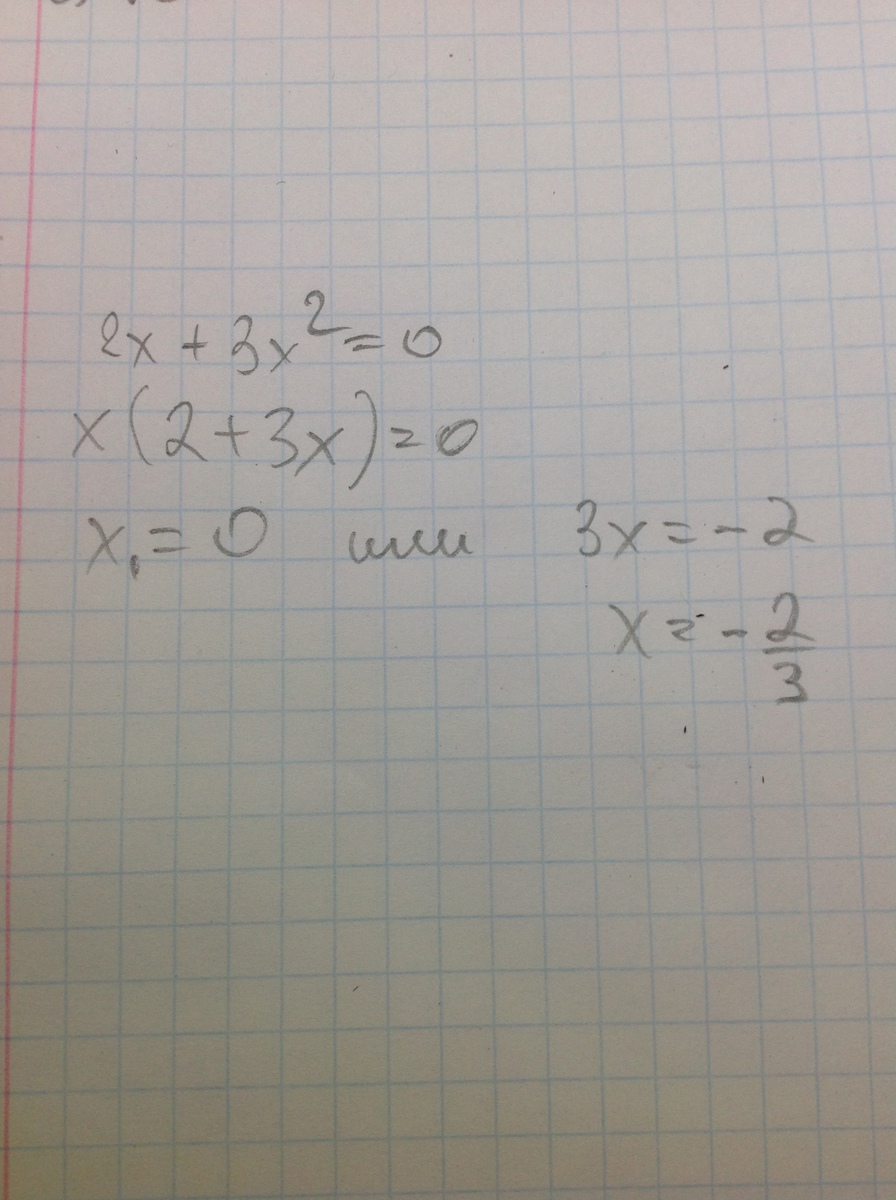 2x + 3x² = 0
x(2+3x)=0
x₁ = 0 или 3x = -2
x = -2/3